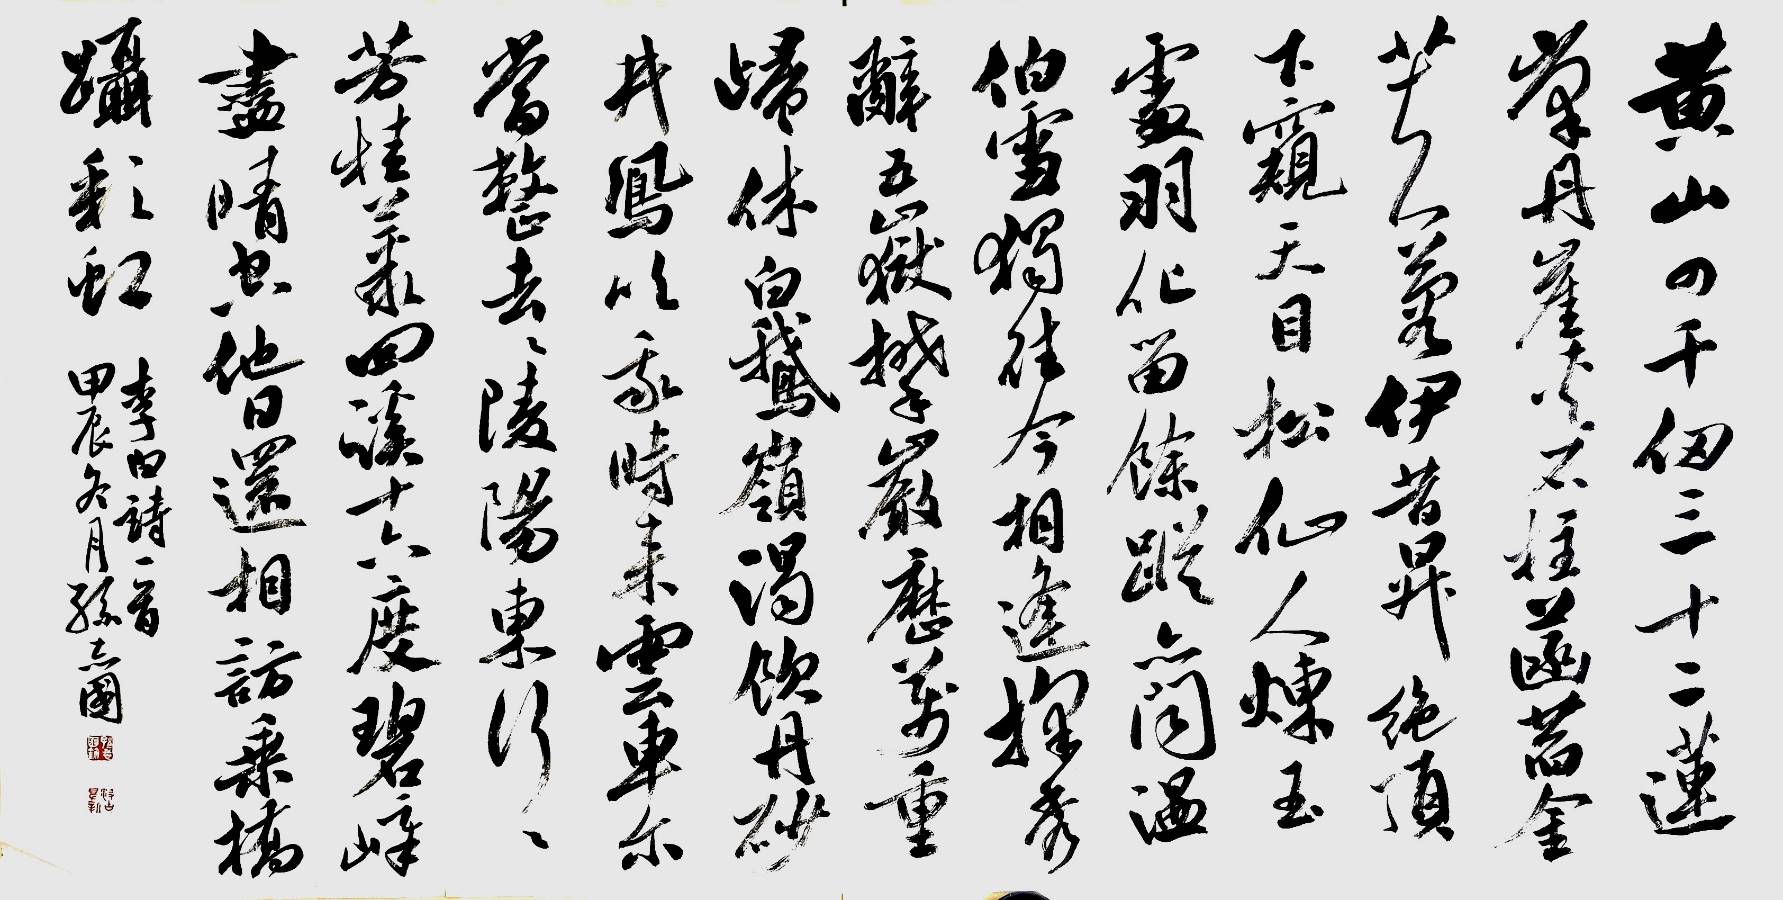 黃山四千仞三十二蓮
峯丹崖夾石柱菡萏金
芙蓉伊昔昇絕頂
下窺天目松仙人煉玉
處羽化留餘蹤亦聞溫
伯雪獨往今相逢採秀
辭五嶽攀巖歷萬重
歸休白鵝嶺渴飲丹砂
井鳳吹我時来雲車尔
當整去々陵陽東行々
芳桂叢回谿十六度碧嶂
盡晴空他日還相訪乘橋
躡彩虹
李白詩一首
甲辰冬月孫志國